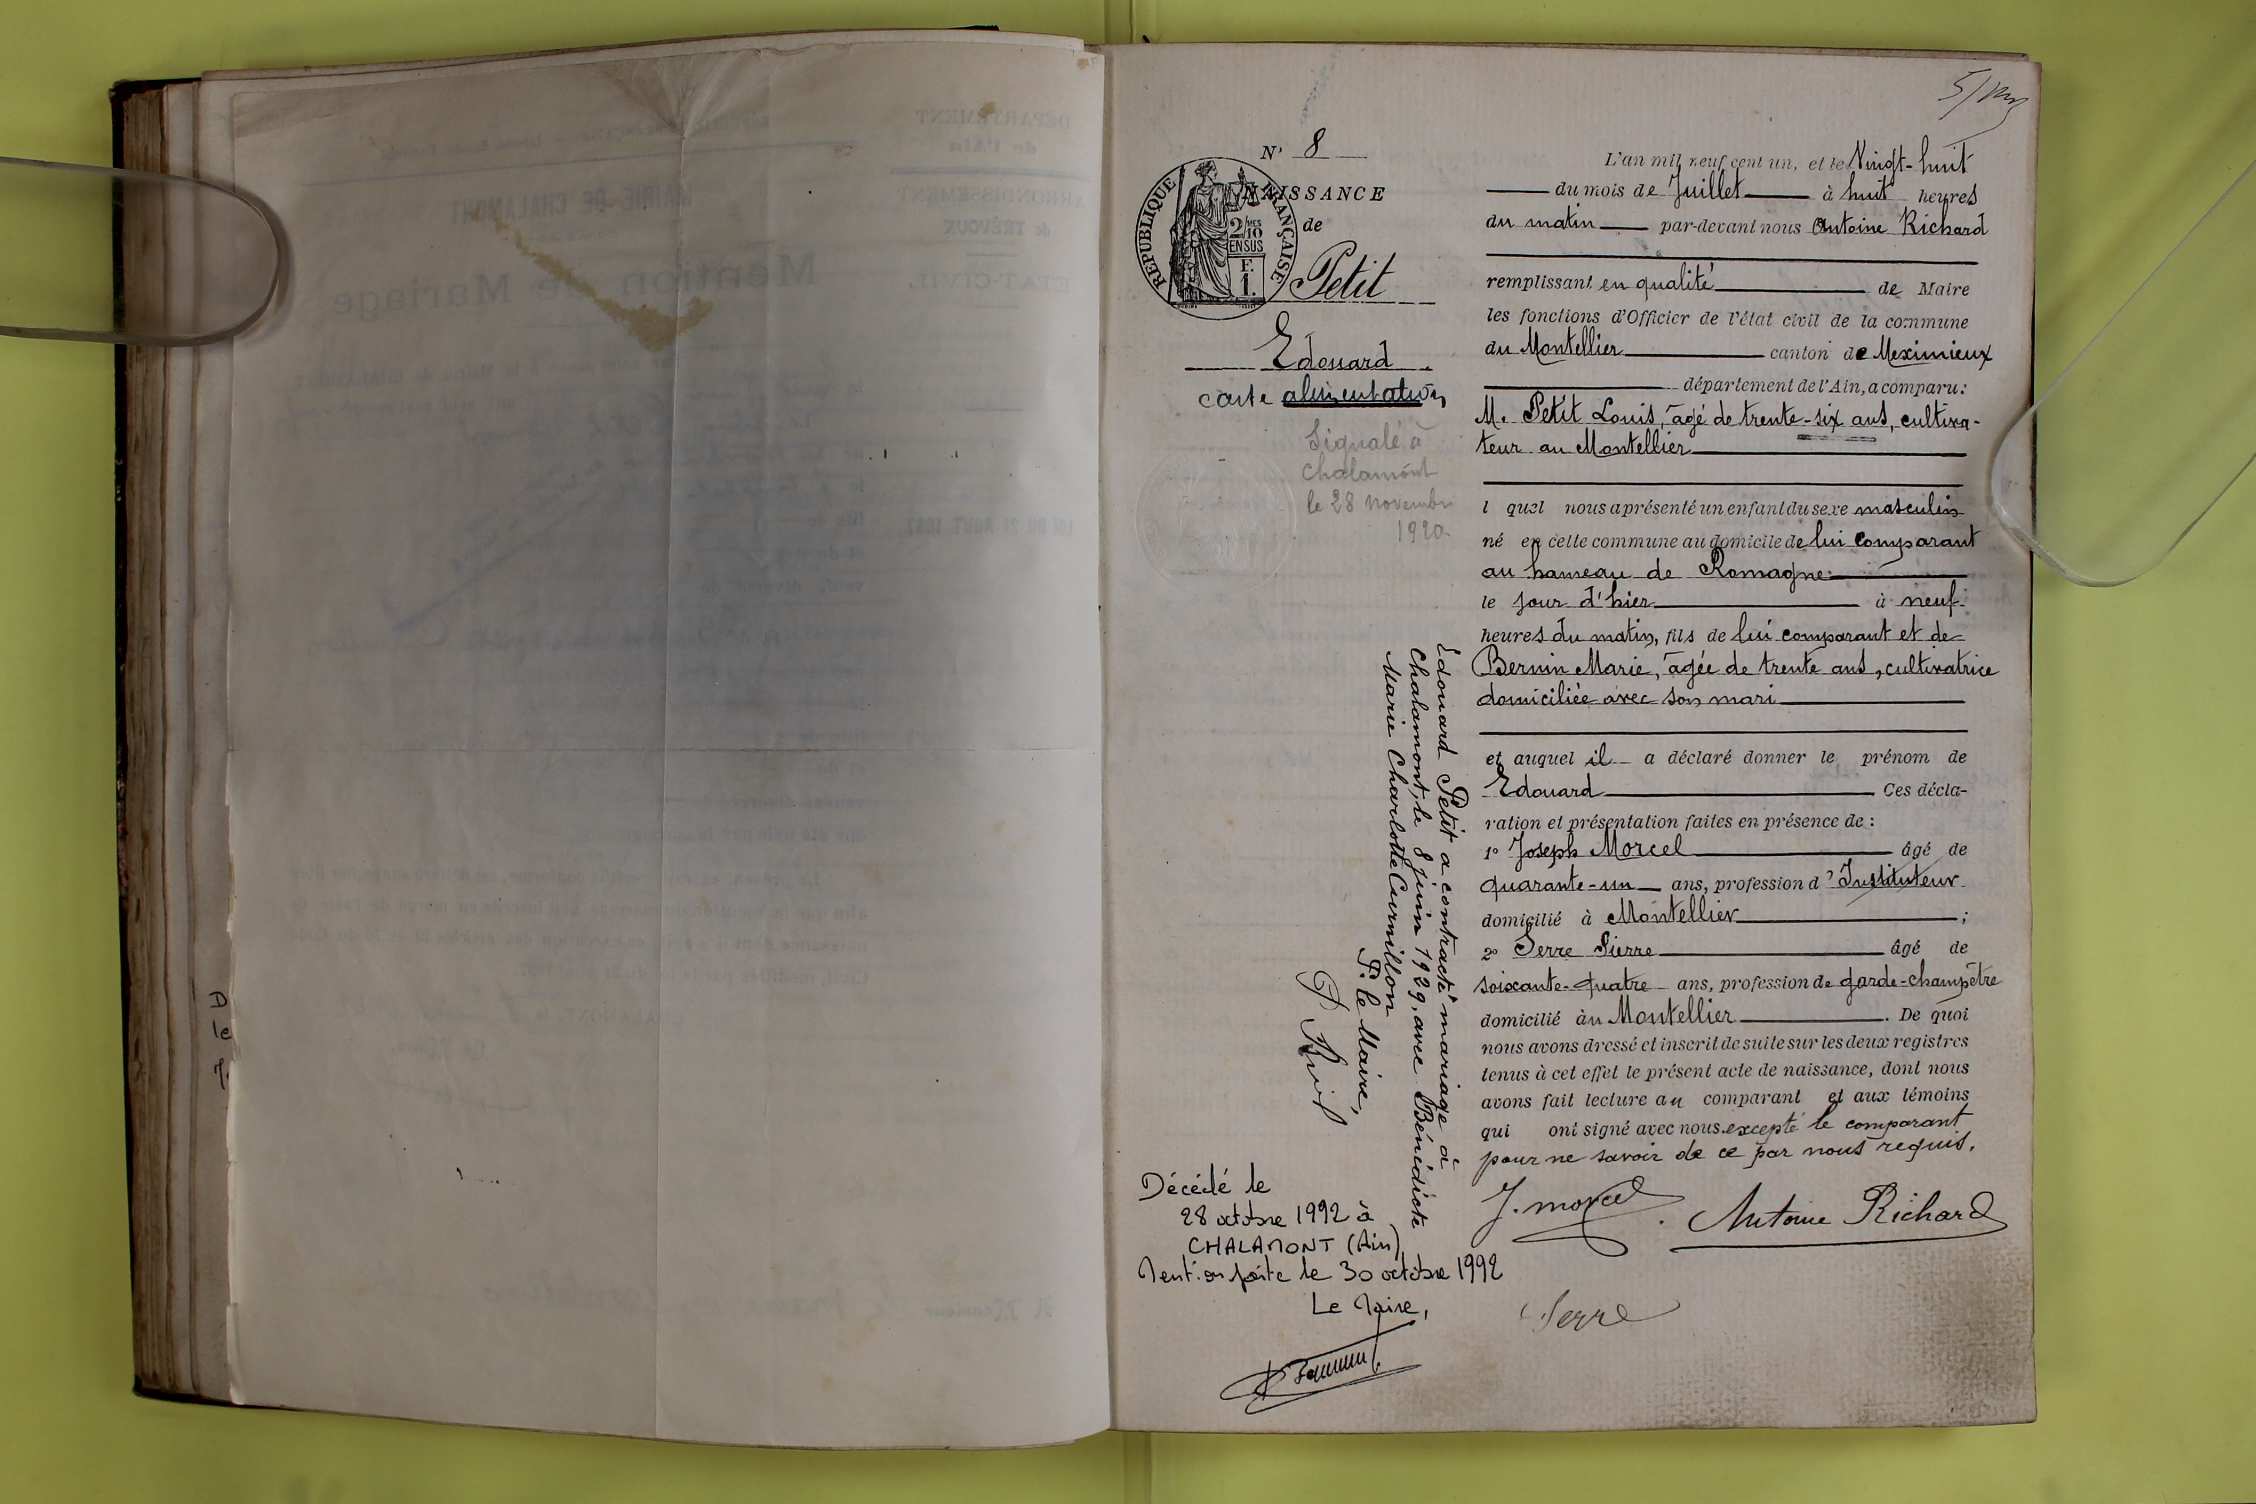 N° 8
NAISSANCE
de
Petit
Edouard
carte alimentation
RÉPUBLIQUE FRANÇAISE
2/10 MES
EN SUS
F.
1.
Signalé à
Chalamont
le 28 novembre
1920
L'an mil neuf cent un, et le Vingt-huit
du mois de Juillet à huit heures
du matin par-devant nous Antoine Richard
remplissant en qualité de Maire
les fonctions d'Officier de l'état civil de la commune
du Montellier canton de Meximieux
département de l'Ain, a comparu:
M. Petit Louis, âgé de trente-six ans, cultiva-
teur au Montellier
l quel nous a présenté un enfant du sexe masculin
né en cette commune au domicile de lui comparant
au hameau de Romagne
le jour d'hier à neuf
heures du matin, fils de lui comparant et de
Bernin Marie, âgée de trente ans, cultivatrice
domiciliée avec son mari
et auquel il a déclaré donner le prénom de
Edouard Ces décla-
ration et présentation faites en présence de :
1° Joseph Morcel âgé de
quarante-un ans, profession d' Instituteur
domicilié à Montellier ;
2° Serre Pierre âgé de
soixante-quatre ans, profession de garde-champêtre
domicilié au Montellier . De quoi
nous avons dressé et inscrit de suite sur les deux registres
tenus à cet effet le présent acte de naissance, dont nous
avons fait lecture au comparant et aux témoins
qui ont signé avec nous excepté le comparant
pour ne savoir de ce par nous requis.
J. Morcel
Antoine Richard
Serre
Edouard Petit a contracté mariage à
Chalamont, le 8 juin 1929, avec Bénédicte
Marie Charlotte Curnillon
P. le Maire,
Décédé le
28 octobre 1992 à
CHALAMONT (Ain)
Mention faite le 30 octobre 1992
Le Maire,